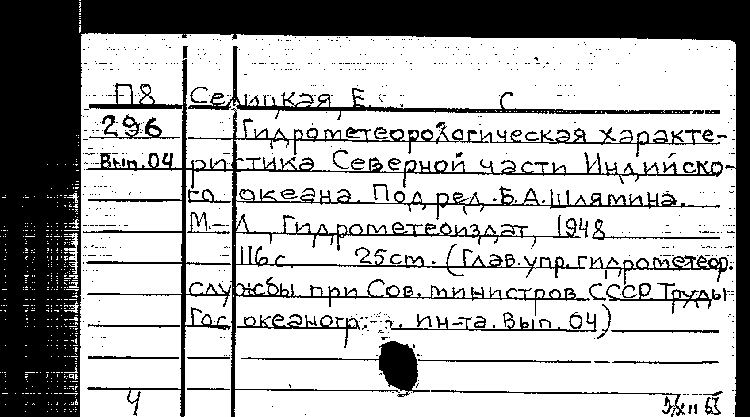 П8 Селицкая, Е. С
296 Гидрометеорологическая характе-
Вып.04 ристика Северной части Индийско-
го океана. Под ред. Б.А.Шлямина.
М-Л., Гидрометеоиздат, 1948
116с. 25cm. (Глав.упр.гидрометеор.
службы при Сов. министров СССР. Труды
Гос. океаногр. ин-та. Вып. 04)
4